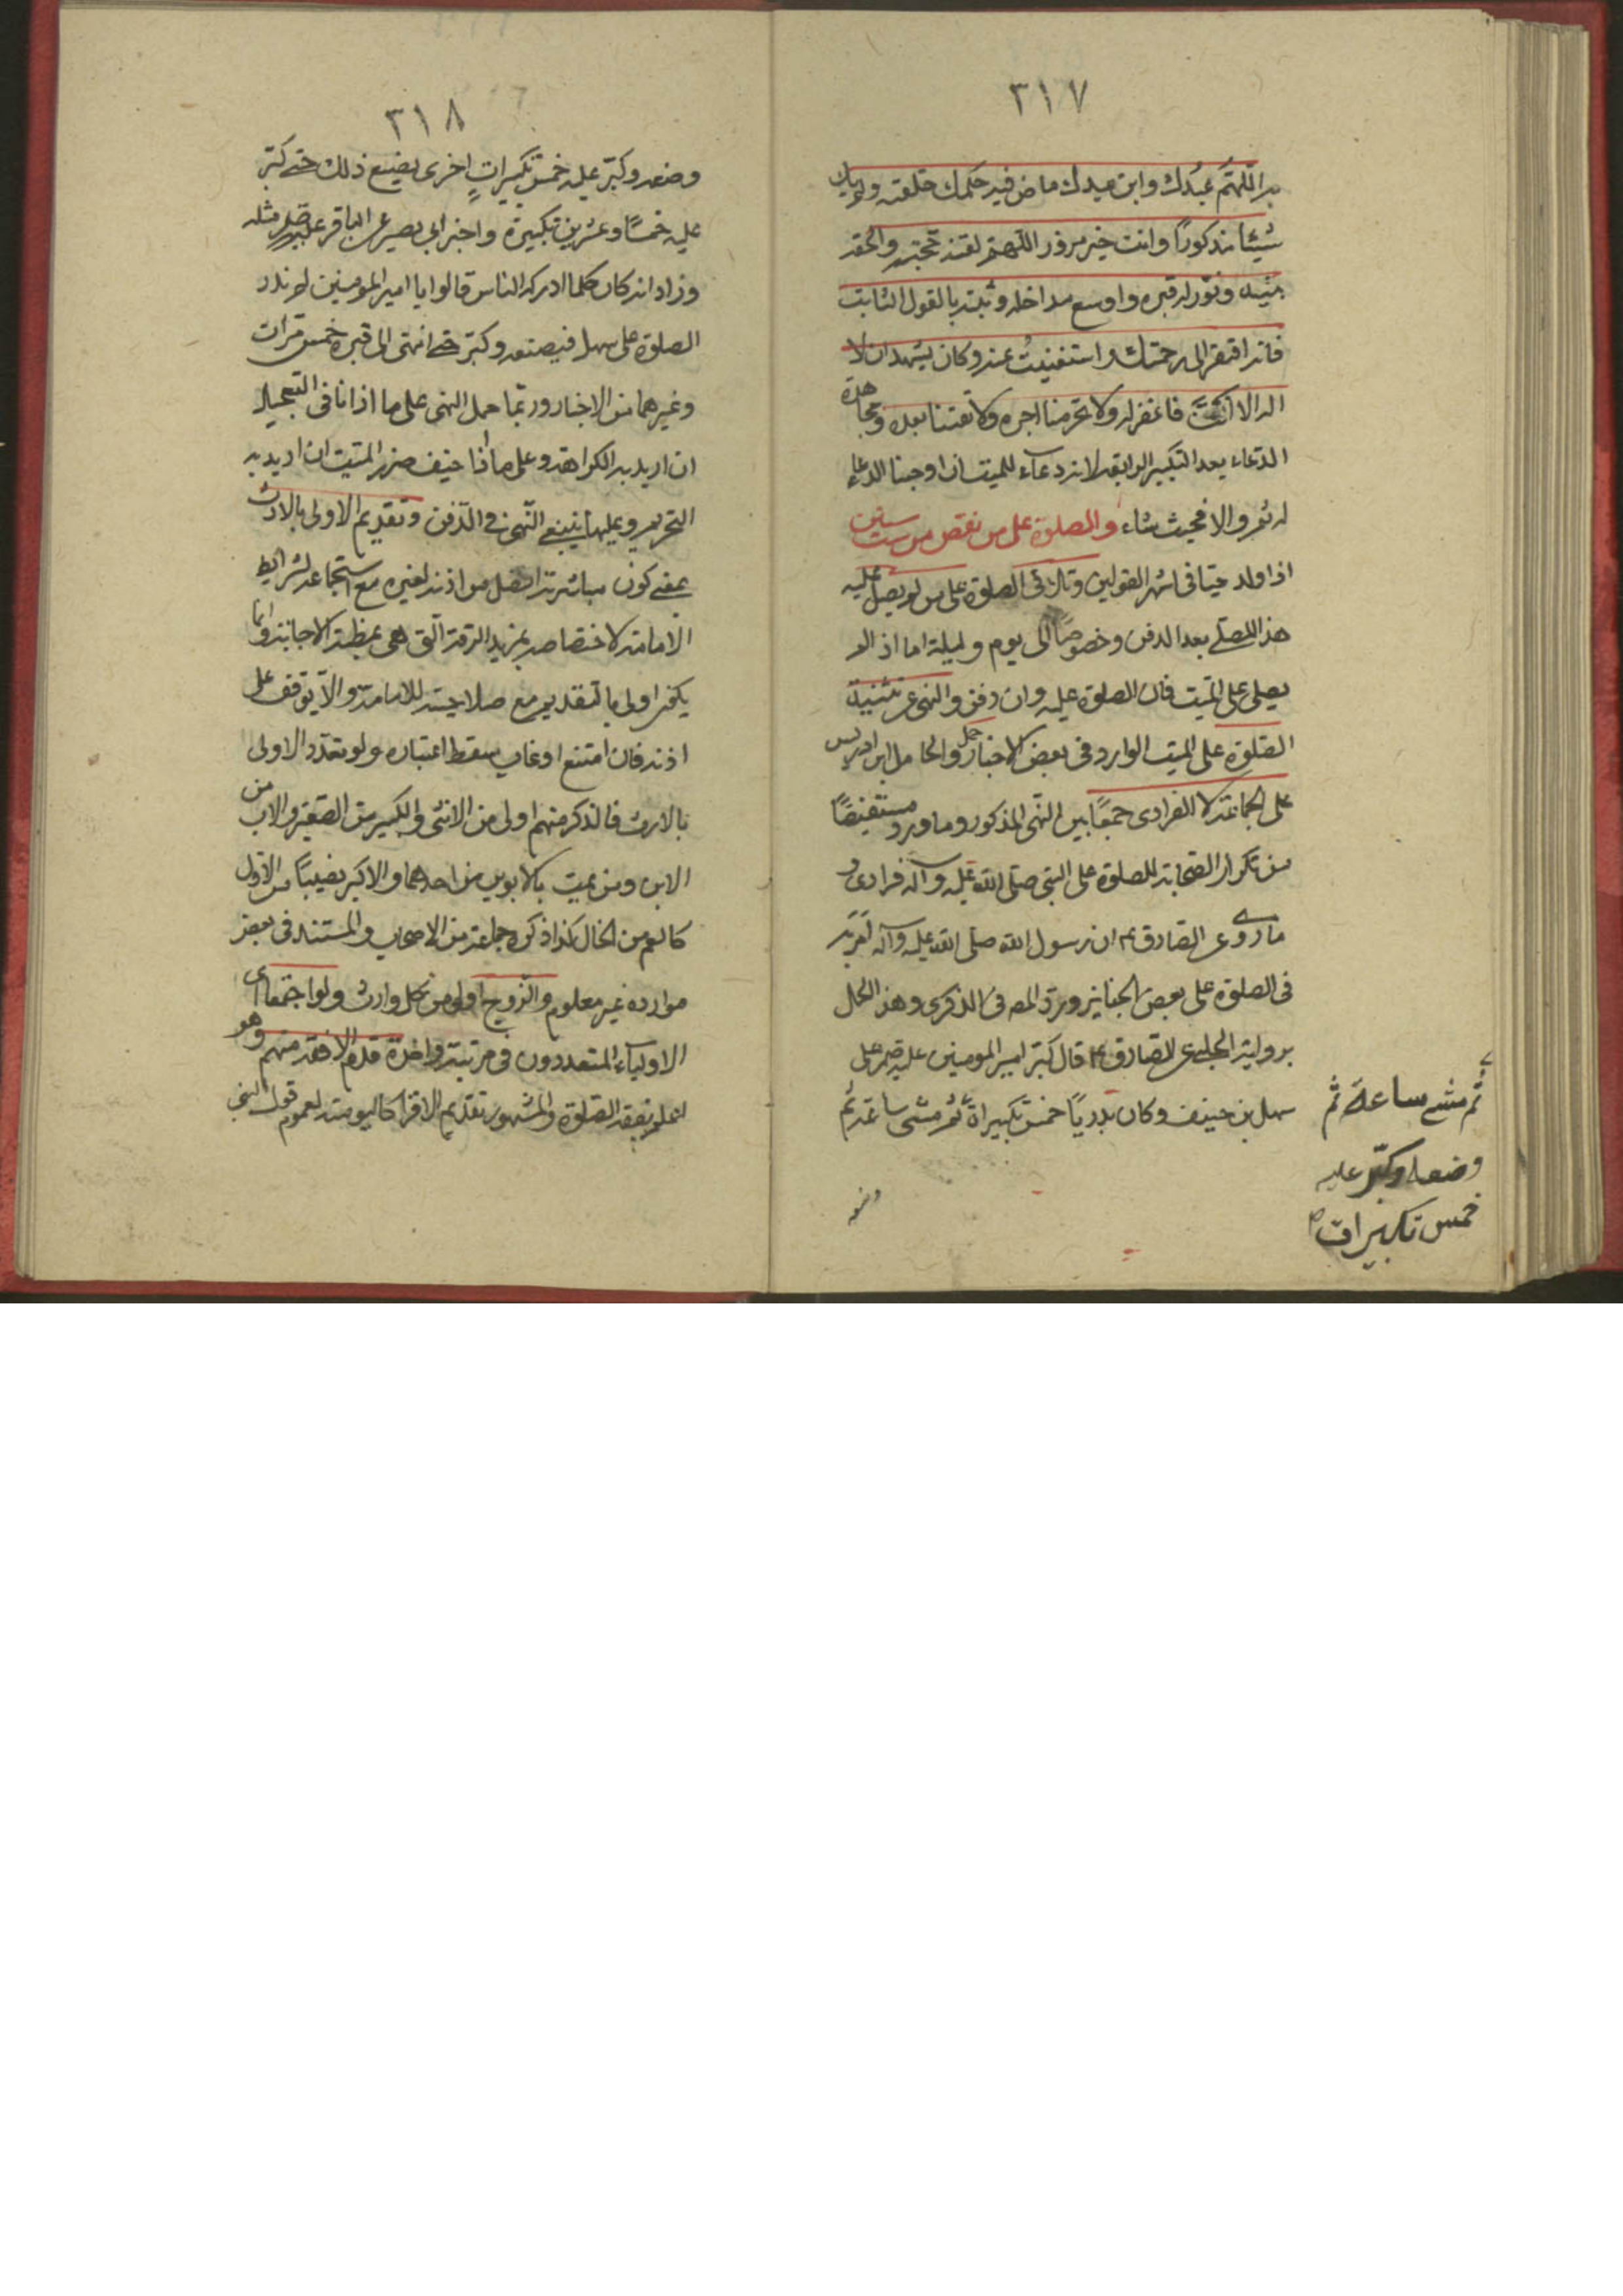 ٣١٧
به اللهم عبدك وابن عبدك ماض فيه حكمك خلقته ولم يك
شيئا مذكورًا وانت خير مزور اللهم لقنه حجته والحقه
بنبيه ونوّر له قبره واوسع مداخله وثبته بالقول الثابت
فانه افتقر الى رحمتك واستغنيت عنه وكان يشهد ان لا
اله الا انت فاغفر له ولا تحرمنا اجره ولا تفتنا بعده
الدعاء بعد التكبير الرابعة لانه دعاء للميت ان اوجبنا الدعاء
له ثم والا فحيث شاء والصلوة على من نقص من ست سنين
اذا ولد حيّا فى اشهر القولين وقال فى الصلوة على من لم يصل عليه
هذا المصلى بعد الدفن وخصوصًا الى يوم وليلة اما اذا لم
يصلى على الميت فان الصلوة عليه وان دفن والنهى عن تثنية
الصّلوة على الميت الوارد فى بعض الاخبار حمل والحامل ابن ادريس
على الجماعة لا الفرادى جمعًا بين النّهى المذكور وما ورد مستفيضًا
من تكرار الصّحابة للصلوة على النبى صلى الله عليه وآله فرادى و
ما روى عن الصّادق ع ان رسول الله صلى الله عليه وآله لم يزد
فى الصلوة على بعض الجنايز ورد المصه فى الذكرى وهذا الحمل
برواية الحلبى عن الصادق ع قال كبّر امير المومنين عليه السلم على
سهل بن حنيف وكان بدريًا خمس تكبيراة ثم مشى ساعة ثم
وضعه
ثم مشى ساعة ثم
وضعه وكبّر عليه
خمس تكبيرات
٣١٨
وضعه وكبّر عليه خمس تكبيراتٍ اخرى يصنع ذلك حتى كبّر
عليه خمسًا وعشرين تكبيرة وخبر ابى بصير عن الباقر عليه مثله
وزاد انه كان كلما ادركه الناس قالوا يا امير المومنين لم ندرك
الصلوة على سهل فيضعه وكبّر حتى انتهى الى قبره خمس مرّات
وغيرهما من الاخبار وربّما حمل النهى على ما اذا نافى التعجيل
ان اريد به الكراهة وعلى ما اذا خيف ضرر الميت ان اريد به
التحريم وعليها ينبغى النّهى فى الدّفن وتقديم الاولى بالارث
بمعنى كون مباشرته افضل من اذنه لغيره مع استجماعه لشرايط
الامامة لاختصاصه بمزيد الرقة التى هى مظنة الاجابة وانّما
يكون اولى بالتقديم مع صلاحيته للامامة والّا يوقف على
اذنه فان امتنع او غاب سقط اعتباره ولو تعدّد الاولى
بالارث فالذكر منهم اولى من الانثى والكبير من الصغير والاب من
الابن ومن يمت بالابوين من احدهما والاكبر نصيبًا من الاقل
كالعم من الخال كذا ذكره جماعة من الاصحاب والمستند فى بعض
موارده غير معلوم والزوج اولى من كل وارث ولو اجتمعا اى
الاولياء المتعددون فى مرتبة واحدة قدم الافقه منهم وهو
اعلم بفقه الصّلوة والمشهور تقديم الاقرا كاليومية لعموم قول النبى